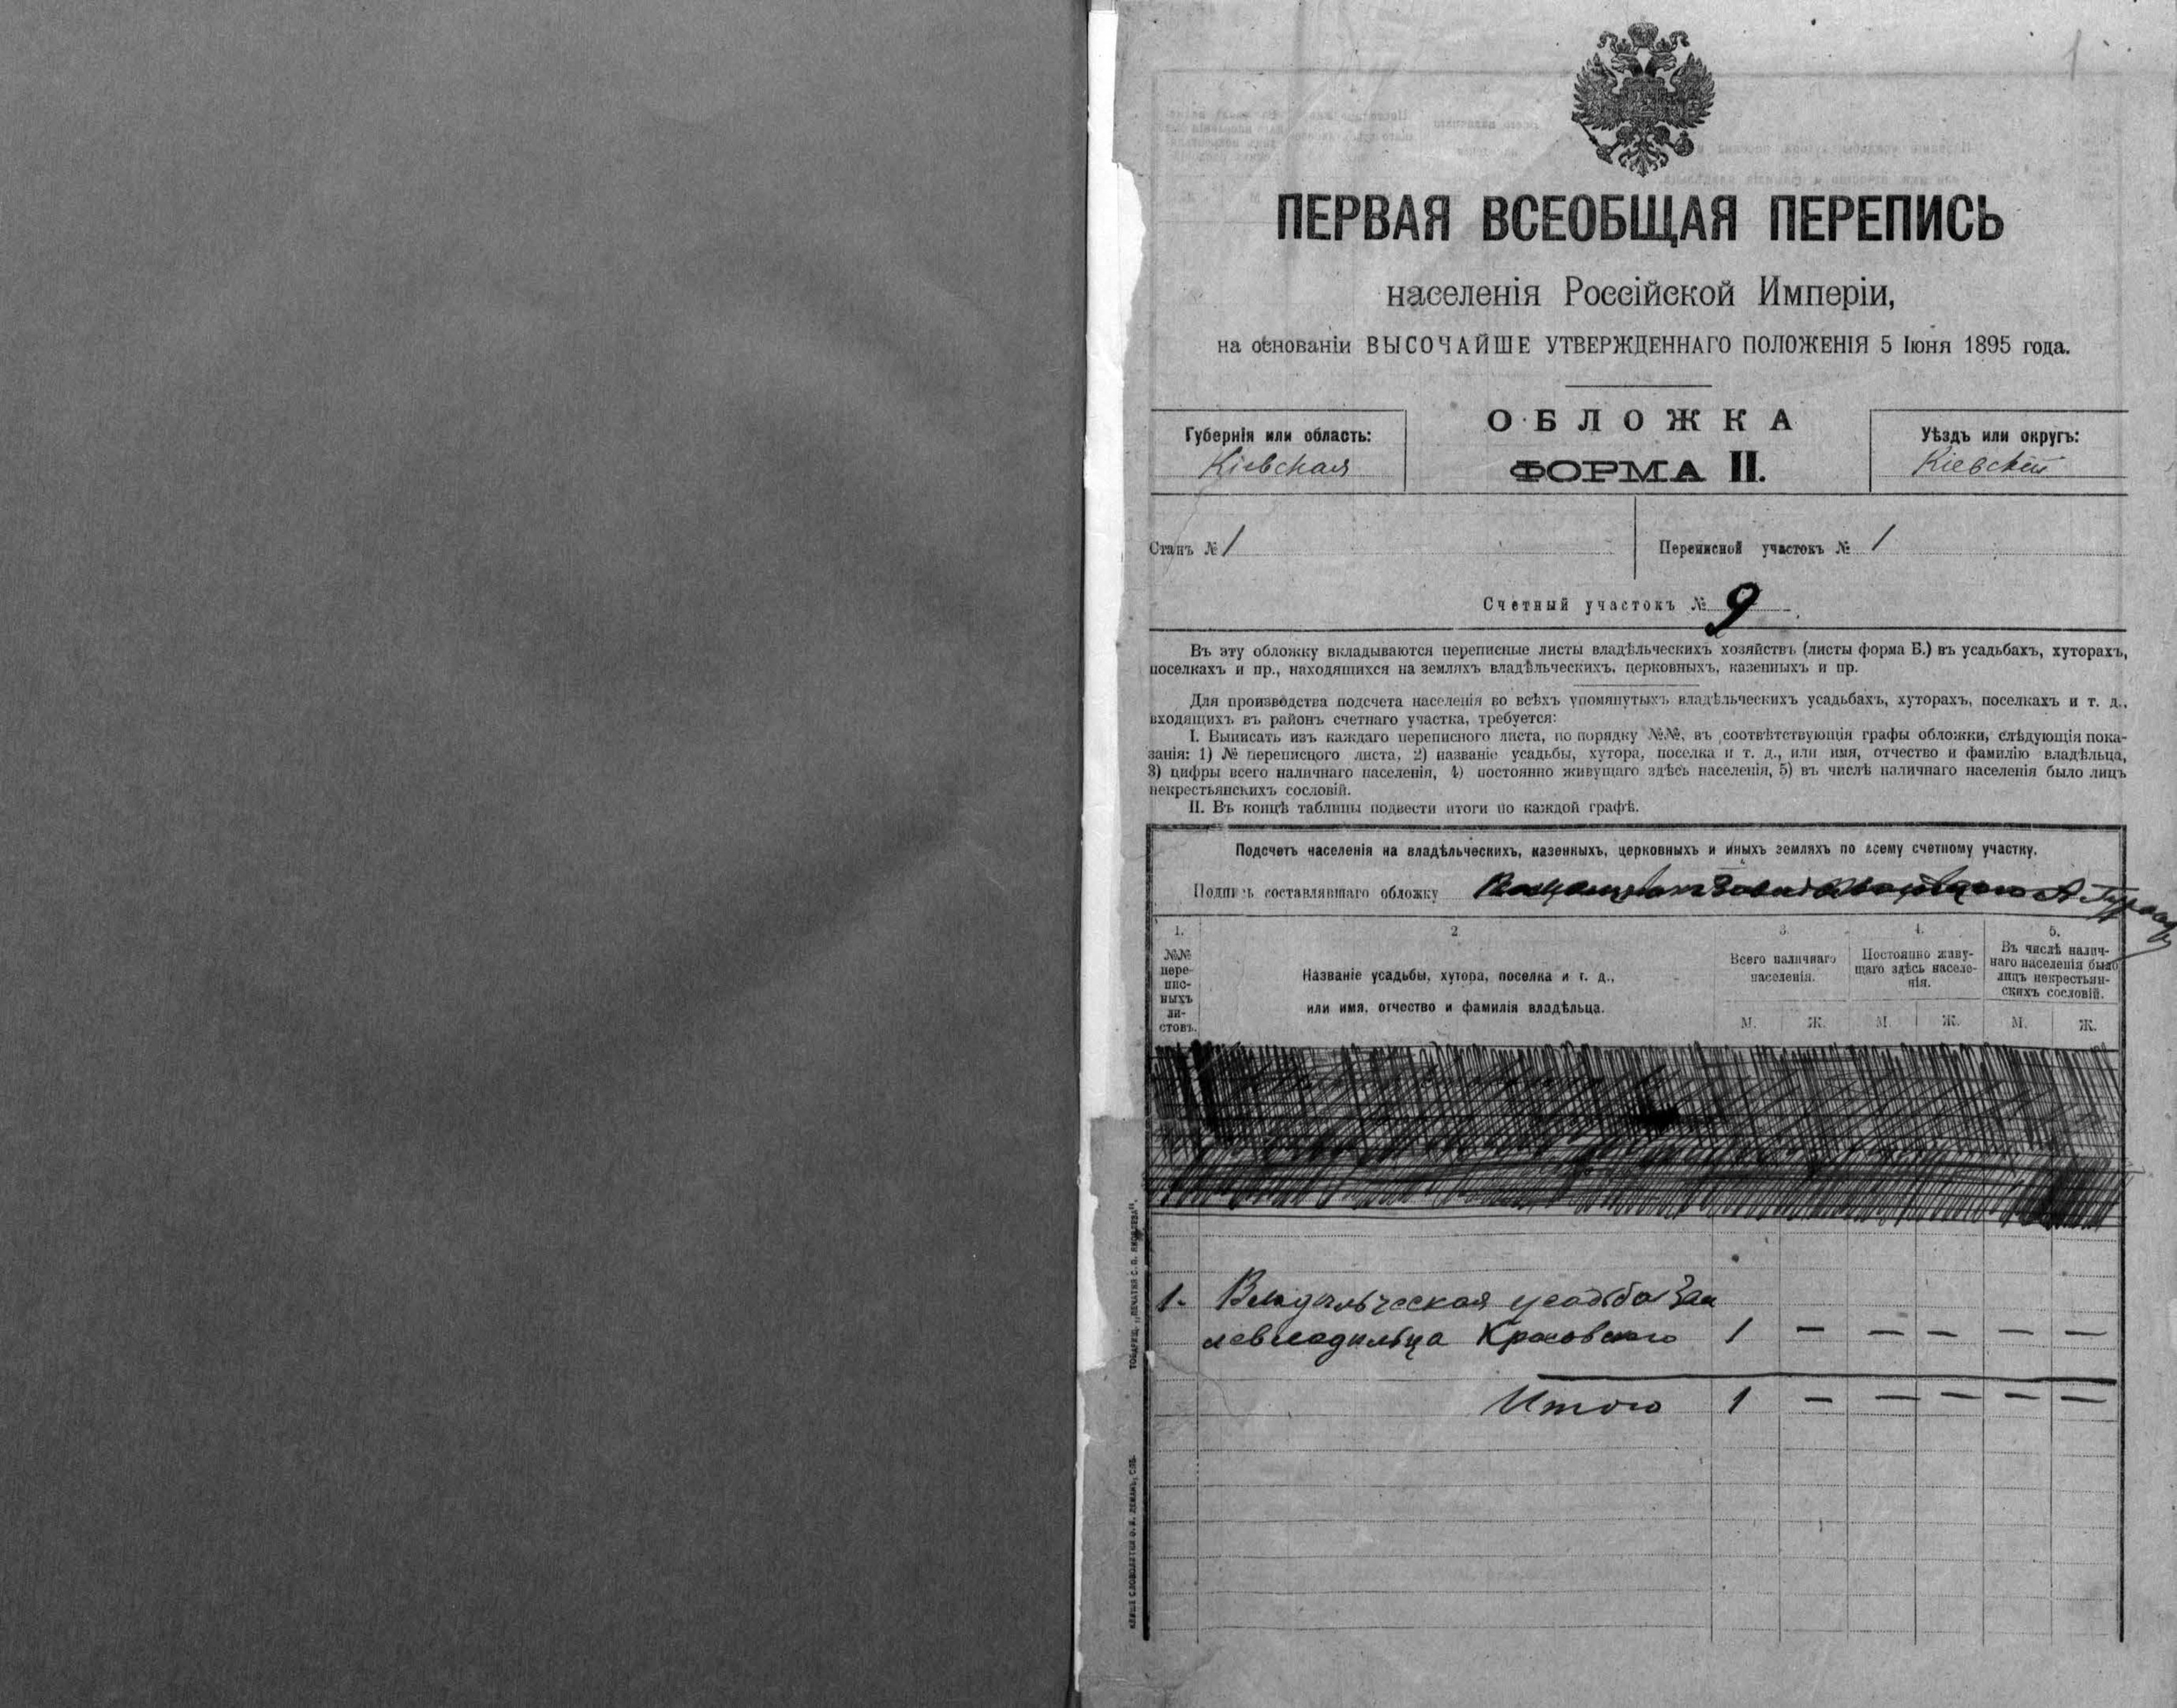 1
ПЕРВАЯ ВСЕОБЩАЯ ПЕРЕПИСЬ
населенія Россійской Имперіи,
на основаніи ВЫСОЧАЙШЕ УТВЕРЖДЕННАГО ПОЛОЖЕНІЯ 5 Іюня 1895 года.
ОБЛОЖКА
ФОРМА II.
Губернія или область:
Кіевская
Уѣздъ или округъ:
Кіевскій
Станъ № 1
Переписной участокъ № 1
Счетный участокъ № 9
Въ эту обложку вкладываются переписные листы владѣльческихъ хозяйствъ (листы форма Б.) въ усадьбахъ, хуторахъ,
поселкахъ и пр., находящихся на земляхъ владѣльческихъ, церковныхъ, казенныхъ и пр.
Для производства подсчета населенія во всѣхъ упомянутыхъ владѣльческихъ усадьбахъ, хуторахъ, поселкахъ и т. д.,
входящихъ въ районъ счетнаго участка, требуется:
I. Выписать изъ каждаго переписного листа, по порядку №№, въ соотвѣтствующія графы обложки, слѣдующія пока-
занія: 1) № переписного листа, 2) названіе усадьбы, хутора, поселка и т. д., или имя, отчество и фамилію владѣльца,
3) цифры всего наличнаго населенія, 4) постоянно живущаго здѣсь населенія, 5) въ числѣ наличнаго населенія было лицъ
некрестьянскихъ сословій.
II. Въ концѣ таблицы подвести итоги по каждой графѣ.
Подсчетъ населенія на владѣльческихъ, казенныхъ, церковныхъ и иныхъ земляхъ по всему счетному участку.
Подпись составлявшаго обложку
1. 2 3. 4. 5.
№№ пере-писныхъ ли-стовъ.
Названіе усадьбы, хутора, поселка и т. д.,
или имя, отчество и фамилія владѣльца.
Всего наличнаго
населенія.
Постоянно живу-
щаго здѣсь населе-
нія.
Въ числѣ налич-
наго населенія было
лицъ некрестьян-
скихъ сословій.
М. Ж. М. Ж. М. Ж.
1. Владѣльческая усадьба Зем
левладѣльца Красовскаго 1 — — — — —
Итого 1 — — — — —
ТОВАРИЩ. „ПЕЧАТНЯ С. П. ЯКОВЛЕВА".